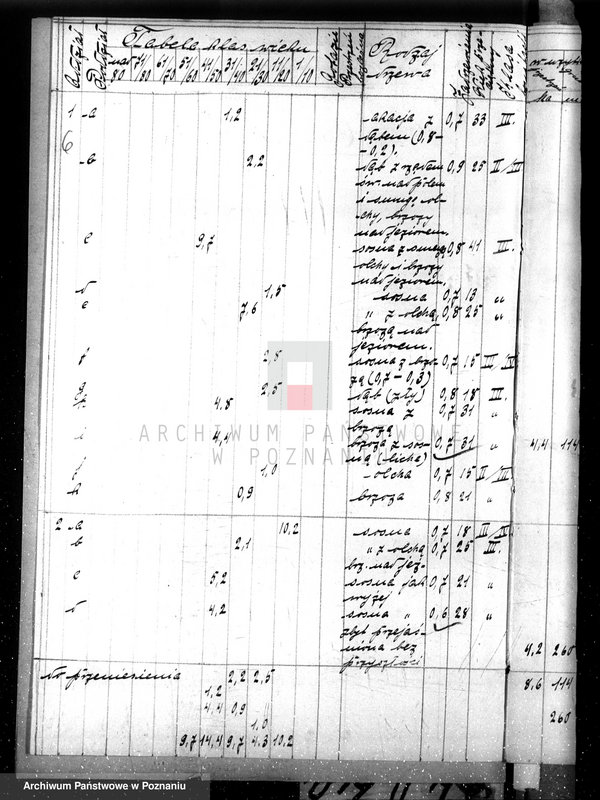 Oddział Pododdział Tabela klas wieku Rodzaj drzewa Zadrzewienie Klasa
nad 80 71/80 61/70 51/60 41/50 31/40 21/30 11/20 1/10
1 a 1,2 akacja z 0,7 33 III.
dębem (0,8-
-0,2).
6
b 2,2 dąb z rzędem 0,9 25 II/III
św. nad polem
i smugą ol-
chy, brzozy
nad jeziorem.
c 9,7 sosna z smugą 0,8 41 III.
olchy i brzozy
nad jeziorem.
d 1,5 sosna 0,7 13 "
e 7,6 " z olchą, 0,8 25 "
brzozą nad
jeziorem.
f 2,8 sosna z brzo- 0,7 15 III/IV
zą (0,7-0,3)
g 2,5 dąb (zły) 0,8 18 III.
h 4,8 sosna z 0,7 31 "
brzozą
i 4,4 brzoza z sos- 0,7 31 " 4,4 114
ną (licha)
j 1,0 olcha 0,7 15 II/III
k 0,9 brzoza 0,8 21 "
2 a 10,2 sosna 0,7 18 III/IV
b 2,1 " z olchą 0,7 25 III.
brz. nad jez-
c 5,2 sosna jak 0,7 21 "
wyżej
d 4,2 sosna " 0,6 28 "
zbyt przejaś-
niona bez
przyszłości 4,2 260
Do przeniesienia 2,2 2,5 8,6 114
1,2
4,4 0,9 " 260
1,0
9,7 14,4 9,7 4,3 10,2
ARCHIWUM PAŃSTWOWE
W POZNANIU
Archiwum Państwowe w Poznaniu